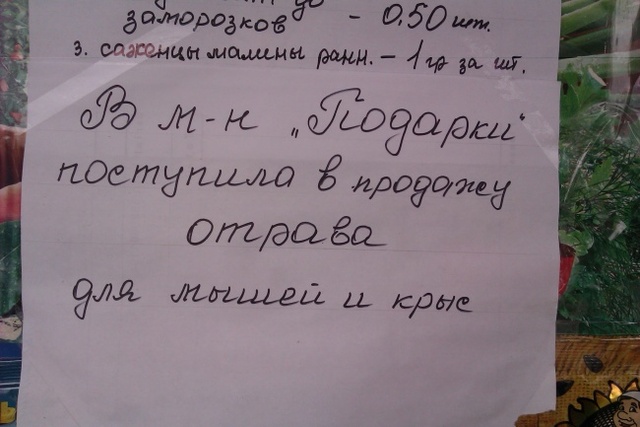 заморозков - 0,50 шт.
3. саженцы малины ранн. - 1 гр за шт.
В м-н „Подарки“
поступила в продажу
отрава
для мышей и крыс